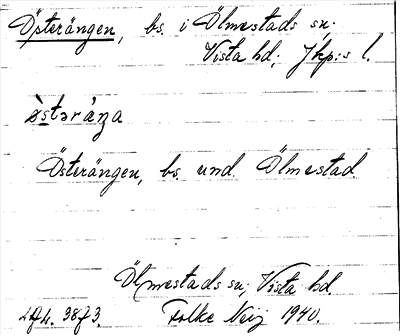 Österängen, bs. i Ölmestads sn;
Vista hd; Jkp:s l.
östəräŋa
Österängen, bs. und. Ölmestad.
Ölmestads sn, Vista hd.
Folke 1940.